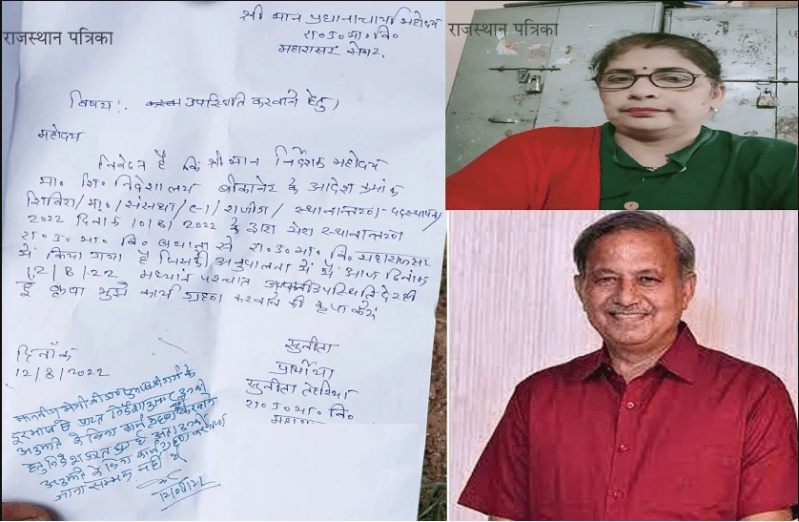 राजस्थान पत्रिका
श्री मान प्रधानाचार्य महोदय
रा०उ०मा०वि०
महारासर सेवर
विषय:- उपस्थिति करवाने हेतु।
महोदय
निवेदन है कि श्री मान निर्देशक महोदय
मा० शि० निदेशालय बीकानेर के आदेश क्रमांक
स्थानान्तरण-पदस्थापन/
2022 दिनांक 10/8/2022 के द्वारा मेरा स्थानान्तरण
रा०उ०मा०वि० बयाना से रा०उ०मा०वि० महारासर
में किया गया है जिसकी अनुपालना में मैं आज दिनांक
12/8/22 मध्यांन पश्चात उपस्थिति दे रही
हूँ कृपया मुझे कार्य ग्रहण करवाने की कृपा करें
सुनीता
प्रार्थीया
सुनीता
रा०उ०मा०वि०
दिनाँक
12/8/2022
अनुमति के बिना कार्य ग्रहण करवाने
अनुमति के बिना कार्य ग्रहण
जाना सम्भव नहीं है
राजस्थान पत्रिका